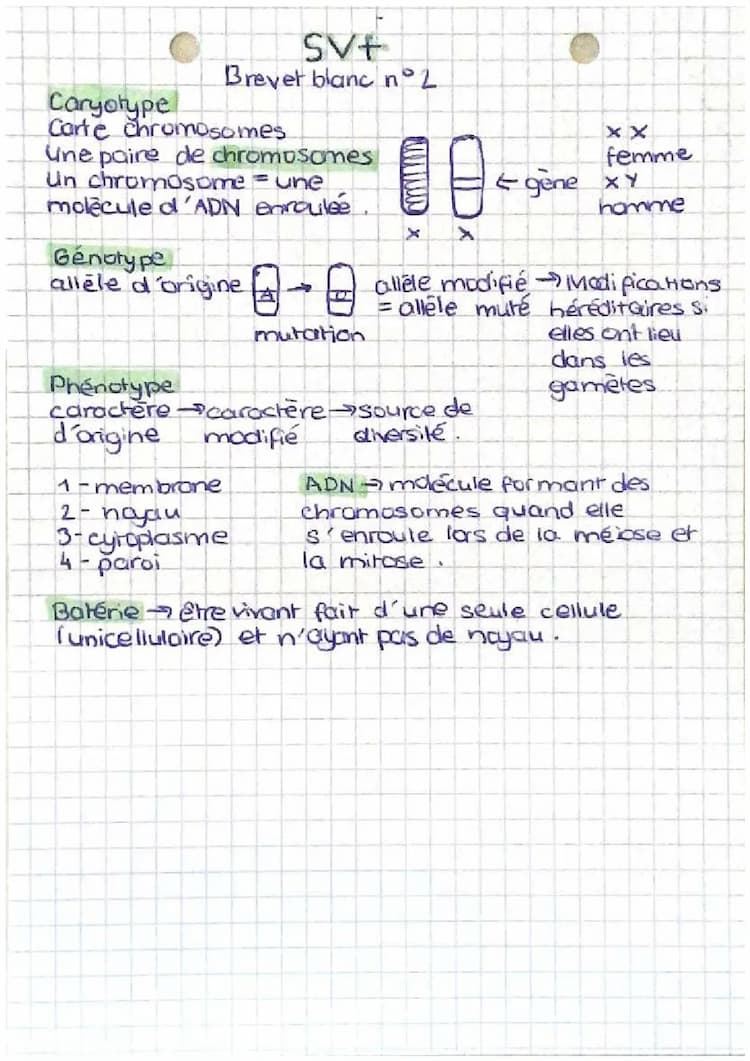 SVt
Brevet blanc n°2
Caryotype
Carte chromosomes
Une paire de chromosomes
Un chromosome = une
molécule d'ADN enroulée.
← gène
x x
femme
x Y
homme
x x
Génotype
allèle d'origine A → B allèle modifié → Modifications
= allèle muté héréditaires si
mutation elles ont lieu
dans les
gamètes
Phénotype
caractère → caractère → source de
d'origine modifié diversité.
1 - membrane
2 - noyau
3 - cytoplasme
4 - paroi
ADN → molécule formant des
chromosomes quand elle
s'enroule lors de la méiose et
la mitose.
Batérie → être vivant fait d'une seule cellule
(unicellulaire) et n'ayant pas de noyau.